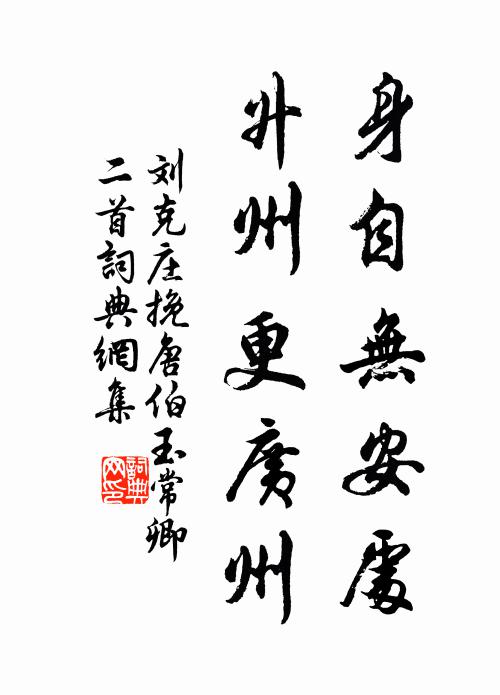 身自無安處
升州更廣州
刘克庄挽唐伯玉常卿
二首詞典網集
詞典
网印